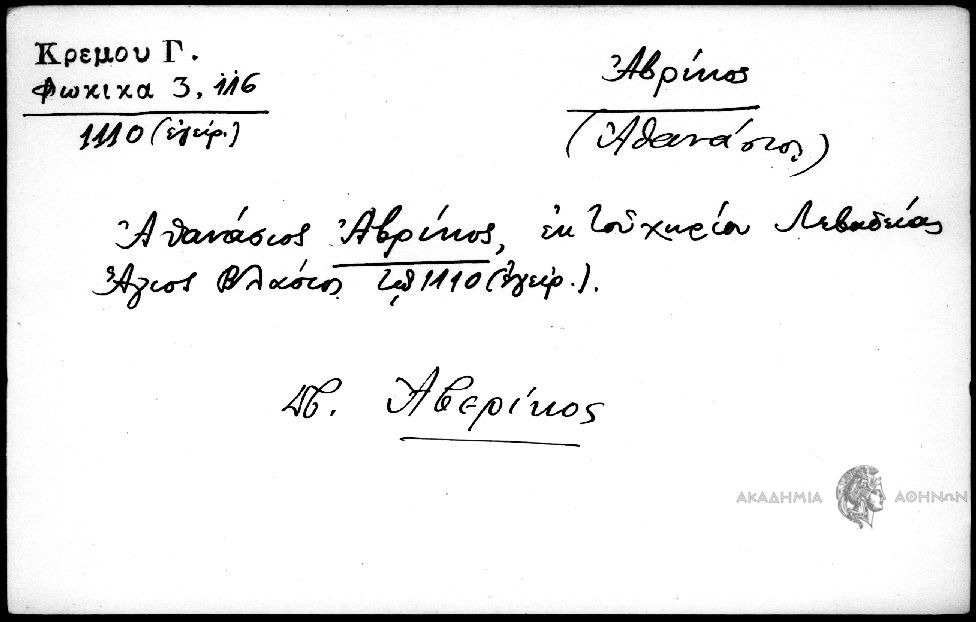 Κρεμου Γ.
Φωκικα 3, 116
1110 (ἐγείρ.)
Ἀβρίκος
(Ἀθανάσιος)
Ἀθανάσιος Ἀβρίκος, ἐκ τοῦ χωρίου Λεβαδείας
Ἅγιος Βλάσιος τῷ 1110 (ἐγείρ.).
Πβ. Ἀβερίκος
ΑΚΑΔΗΜΙΑ ΑΘΗΝΩΝ